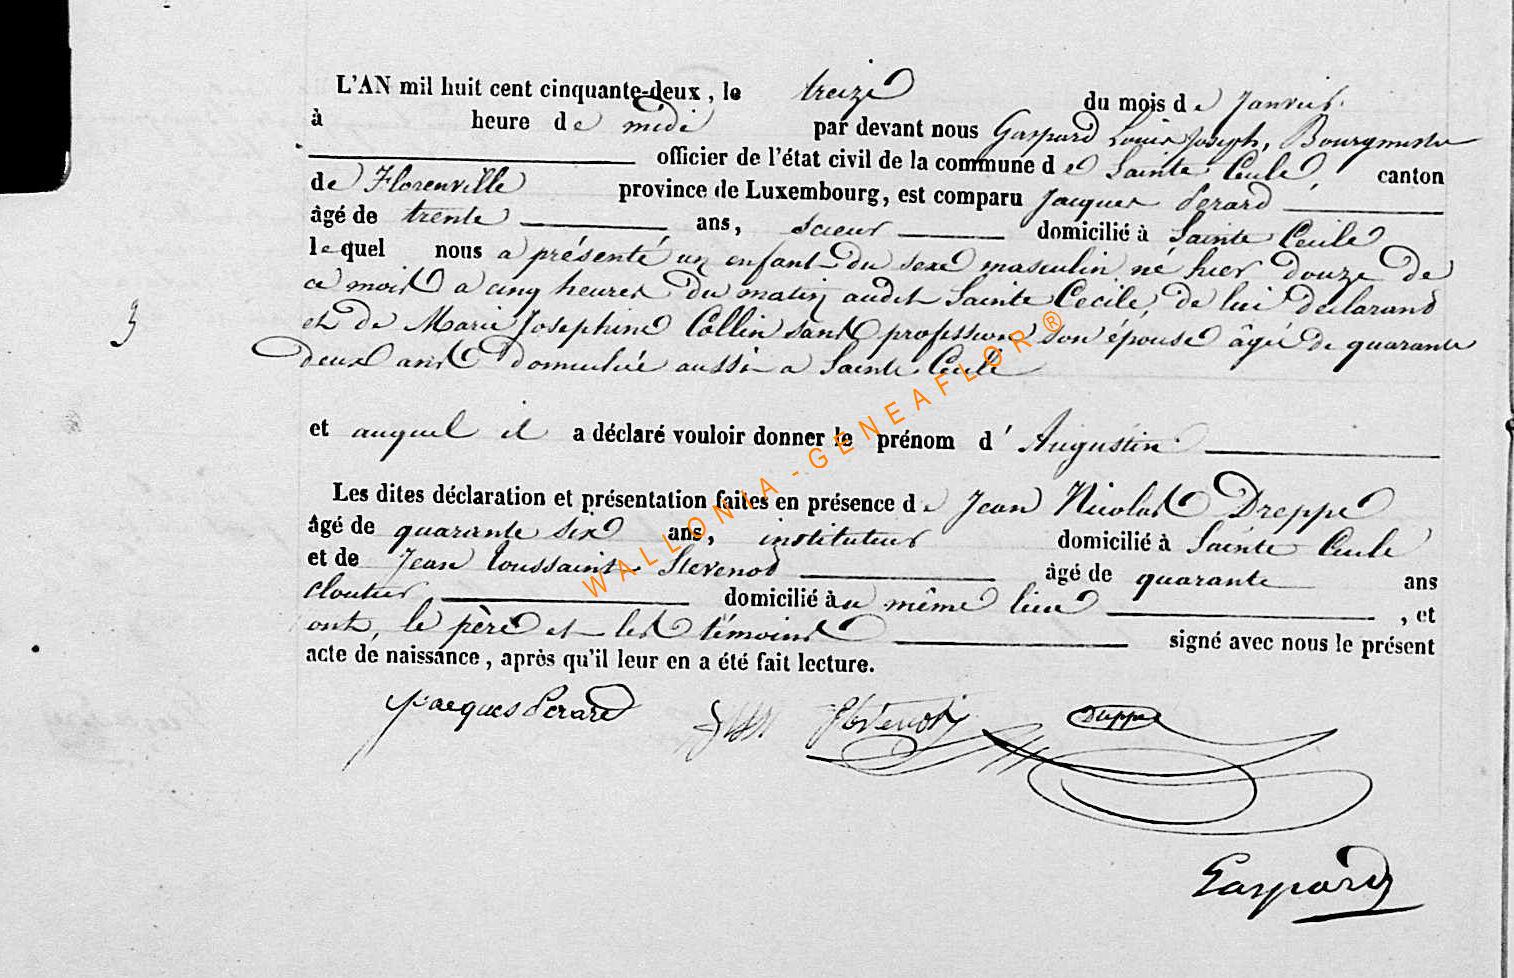 L'AN mil huit cent cinquante-deux, le treize du mois de Janvier.
à heure de midi par devant nous Gaspard Louis Joseph, Bourgmestre
officier de l'état civil de la commune de Sainte Cecile, canton
de Florenville province de Luxembourg, est comparu Jacques Perard
âgé de trente ans, scieur domicilié à Sainte Cecile
lequel nous a présenté un enfant du sexe masculin né hier douze de
ce mois a cinq heures du matin audit Sainte Cecile, de lui déclarant
et de Marie Josephine Collin sans profession son épouse âgée de quarante
deux ans domiciliée aussi a Sainte Cecile
et auquel il a déclaré vouloir donner le prénom d'Augustin
Les dites déclaration et présentation faites en présence de Jean Nicolas Dreppe
âgé de quarante six ans, instituteur domicilié à Sainte Cecile
et de Jean Toussaint Stevenot âgé de quarante ans
cloutier domicilié au même lieu, et
ont, le père et les témoins signé avec nous le présent
acte de naissance, après qu'il leur en a été fait lecture.
3
Jacques Perard Stevenot Dreppe
Gaspard
WALLONIA-GENEAFLOR®